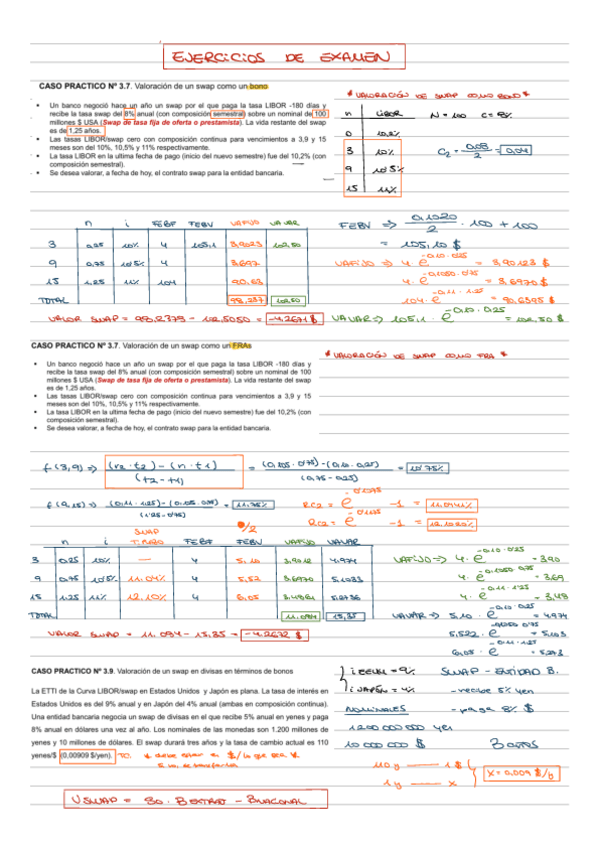 EJERCICIOS DE EXAMEN
CASO PRACTICO Nº 3.7. Valoración de un swap como un bono
* VALORACIÓN DE SWAP COMO BONO *
• Un banco negoció hace un año un swap por el que paga la tasa LIBOR -180 días y
recibe la tasa swap del 8% anual (con composición semestral) sobre un nominal de 100
millones $ USA (Swap de tasa fija de oferta o prestamista). La vida restante del swap
es de 1,25 años.
• Las tasas LIBOR/swap cero con composición continua para vencimientos a 3,9 y 15
meses son del 10%, 10,5% y 11% respectivamente.
• La tasa LIBOR en la ultima fecha de pago (inicio del nuevo semestre) fue del 10,2% (con
composición semestral).
• Se desea valorar, a fecha de hoy, el contrato swap para la entidad bancaria.
n LIBOR N = 100 C = 8%
0 10,2%
3 10%
9 10'5%
15 11%
C2 = 0,08 / 2 = 0,04
n i FEBF TEBV VAFIJO VAVAR
3 0,25 10% 4 105,1 3,9023 102,50
9 0,75 10'5% 4 3,697
15 1,25 11% 104 90,63
TOTAL 98,237 102,50
FEBV => 0,1020 / 2 · 100 + 100
= 105,10 $
VAFIJO => 4 · e -0,10 · 0,25 = 3,90123 $
4 · e -0,1050 · 0,75 = 3,6970 $
104 · e -0,11 · 1,25 = 90,6395 $
VALOR SWAP = 98,2379 - 102,5050 = -4,2671 $
VAVAR => 105,1 · e -0,10 · 0,25 = 102,50 $
CASO PRACTICO Nº 3.7. Valoración de un swap como un FRAs
* VALORACIÓN DE SWAP COMO FRA *
• Un banco negoció hace un año un swap por el que paga la tasa LIBOR -180 días y
recibe la tasa swap del 8% anual (con composición semestral) sobre un nominal de 100
millones $ USA (Swap de tasa fija de oferta o prestamista). La vida restante del swap
es de 1,25 años.
• Las tasas LIBOR/swap cero con composición continua para vencimientos a 3,9 y 15
meses son del 10%, 10,5% y 11% respectivamente.
• La tasa LIBOR en la ultima fecha de pago (inicio del nuevo semestre) fue del 10,2% (con
composición semestral).
• Se desea valorar, a fecha de hoy, el contrato swap para la entidad bancaria.
f(3,9) => (r2 · t2) - (r1 · t1) / (t2 - t1) = (0,105 · 0,75) - (0,10 · 0,25) / (0,75 - 0,25) = 10'75%
f(9,15) => (0,11 · 1,25) - (0,105 · 0,75) / (1,25 - 0,75) = 11,75%
-1 = 11,0441%
-1 = 12,1020%
n i SWAP T. FIJO FEBF FEBV VAFIJO VAVAR
3 0,25 10% — 4 5,10 3,9012 4,974
9 0,75 10'5% 11,04% 4 5,52 3,6970 5,1033
15 1,25 11% 12,10% 4 6,05 3,4861 5,2736
TOTAL 11,084 15,35
VAFIJO => 4 · e -0,10 · 0,25 = 3,90
4 · e -0,1050 · 0,75 = 3,69
4 · e -0,11 · 1,25 = 3,48
VAVAR => 5,10 · e -0,10 · 0,25 = 4,974
5,522 · e -0,1050 · 0,75 = 5,103
6,05 · e -0,11 · 1,25 = 5,273
VALOR SWAP = 11,084 - 15,35 = -4,2672 $
CASO PRACTICO Nº 3.9. Valoración de un swap en divisas en términos de bonos
La ETTI de la Curva LIBOR/swap en Estados Unidos y Japón es plana. La tasa de interés en
Estados Unidos es del 9% anual y en Japón del 4% anual (ambas en composición continua).
Una entidad bancaria negocia un swap de divisas en el que recibe 5% anual en yenes y paga
8% anual en dólares una vez al año. Los nominales de las monedas son 1.200 millones de
yenes y 10 millones de dólares. El swap durará tres años y la tasa de cambio actual es 110
yenes/$ (0,00909 $/yen). TC.
i EEUU = 9% SWAP - ENTIDAD B.
i JAPÓN = 4% - recibe 5% yen
NOMINALES - paga 8% $
1200 000 000 yen
10 000 000 $ 3 años
110 y —— 1 $
1 y —— x
X = 0,009 $/y
V SWAP = S0 · BEXTRAJ - BNACIONAL